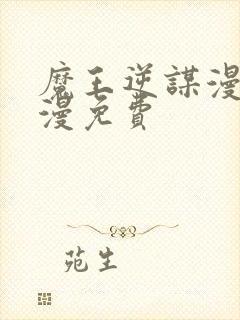 魔王逆謀漫
漫免費
苑生